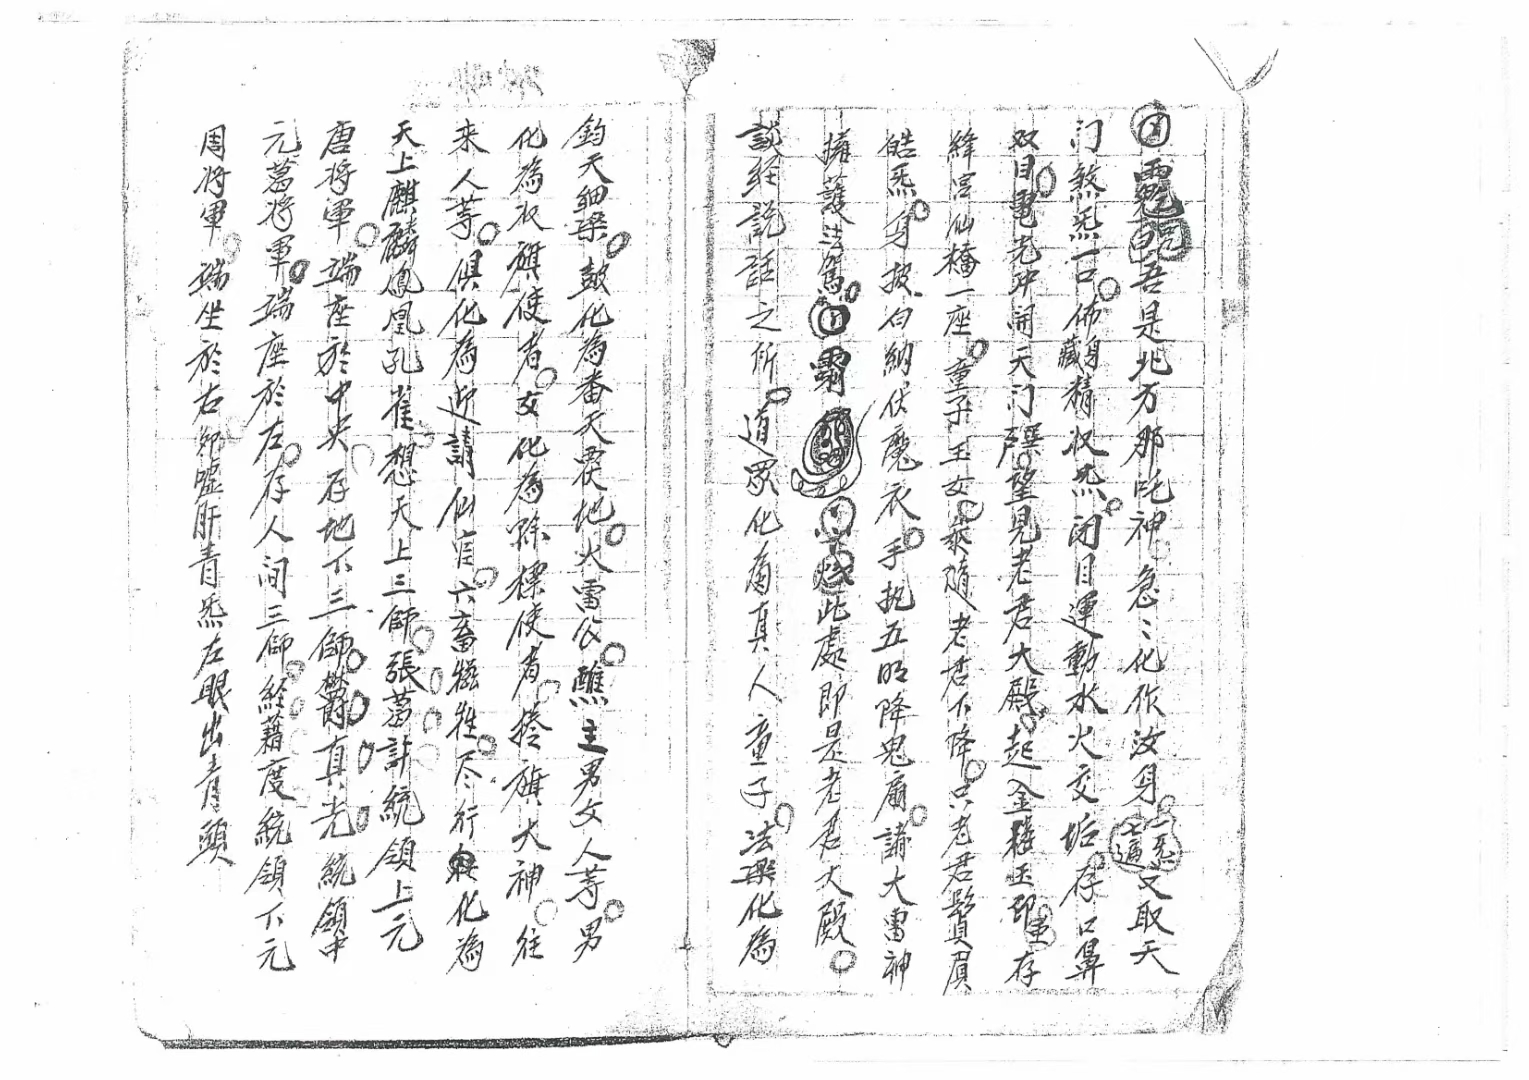 吾是北方那吒神急々化作汝身一炁七遍又取天
门煞炁一口佈身藏精收炁闭目運動水火交姤存口鼻
双目電光冲開天门望見老君大殿起金樓玉印重存
絳宫仙橋一座童子玉女隨老君下降只老君鬓眉
皓炁身披白納伏魔衣手执五明降鬼扇諸大雷神
擁護法駕此處即是老君大殿
談经説話之所道眾化為真人童子法樂化為
鈞天細樂鼓化為番天震地火雷公醮主男女人等男
化為收旗使者女化為標使者捲旗大神往
来人等俱化為迎請仙官六畜牲尽行化為
天上麒麟鳳凰孔雀想天上三師張葛許統领上元
唐将軍端座於中央存地下三師真光統领中
元葛将軍端座於左存人间三師经藉度統领下元
周将軍端坐於右即嘘肝青炁左眼出青頭